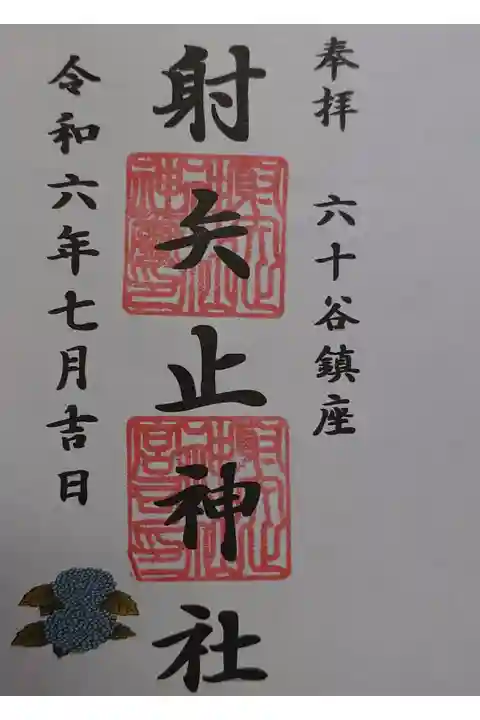 奉拝 六十谷鎮座
射矢止神社
令和六年七月吉日